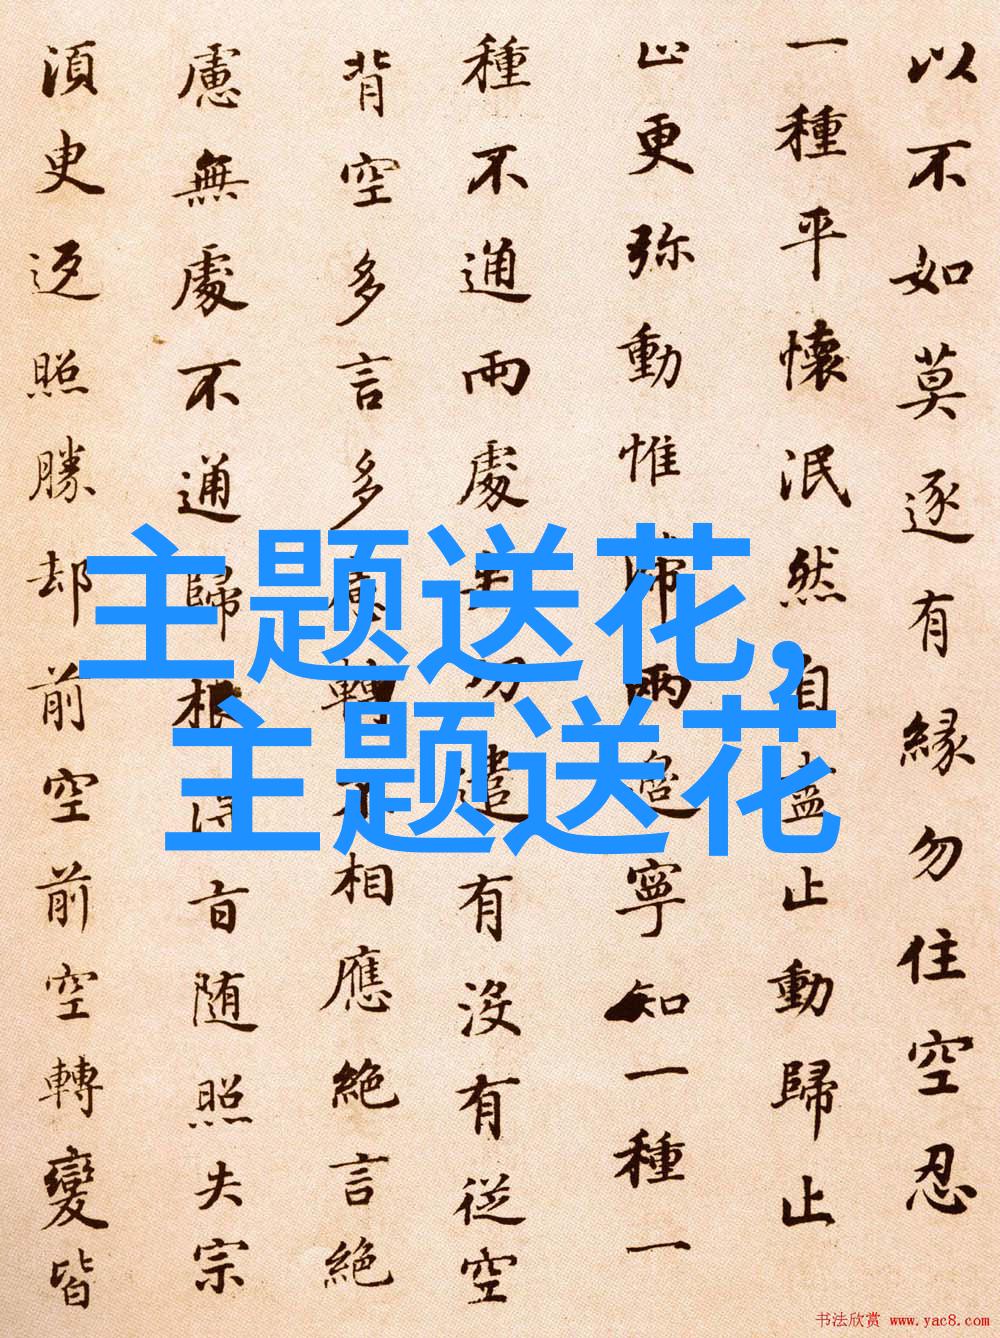 以不如莫逐有緣勿住空忍
一種平懷泯然自盡止動歸止
止更弥動惟歸兩邊寧知一種一
種不通兩處失功遣有沒有從空
背空多言多慮轉不相應絶言絶
慮無處不通歸根得旨随照失宗
須臾返照勝却前空前空轉變皆
主题送花,
主题送花
书法欣赏 www.yac8.com